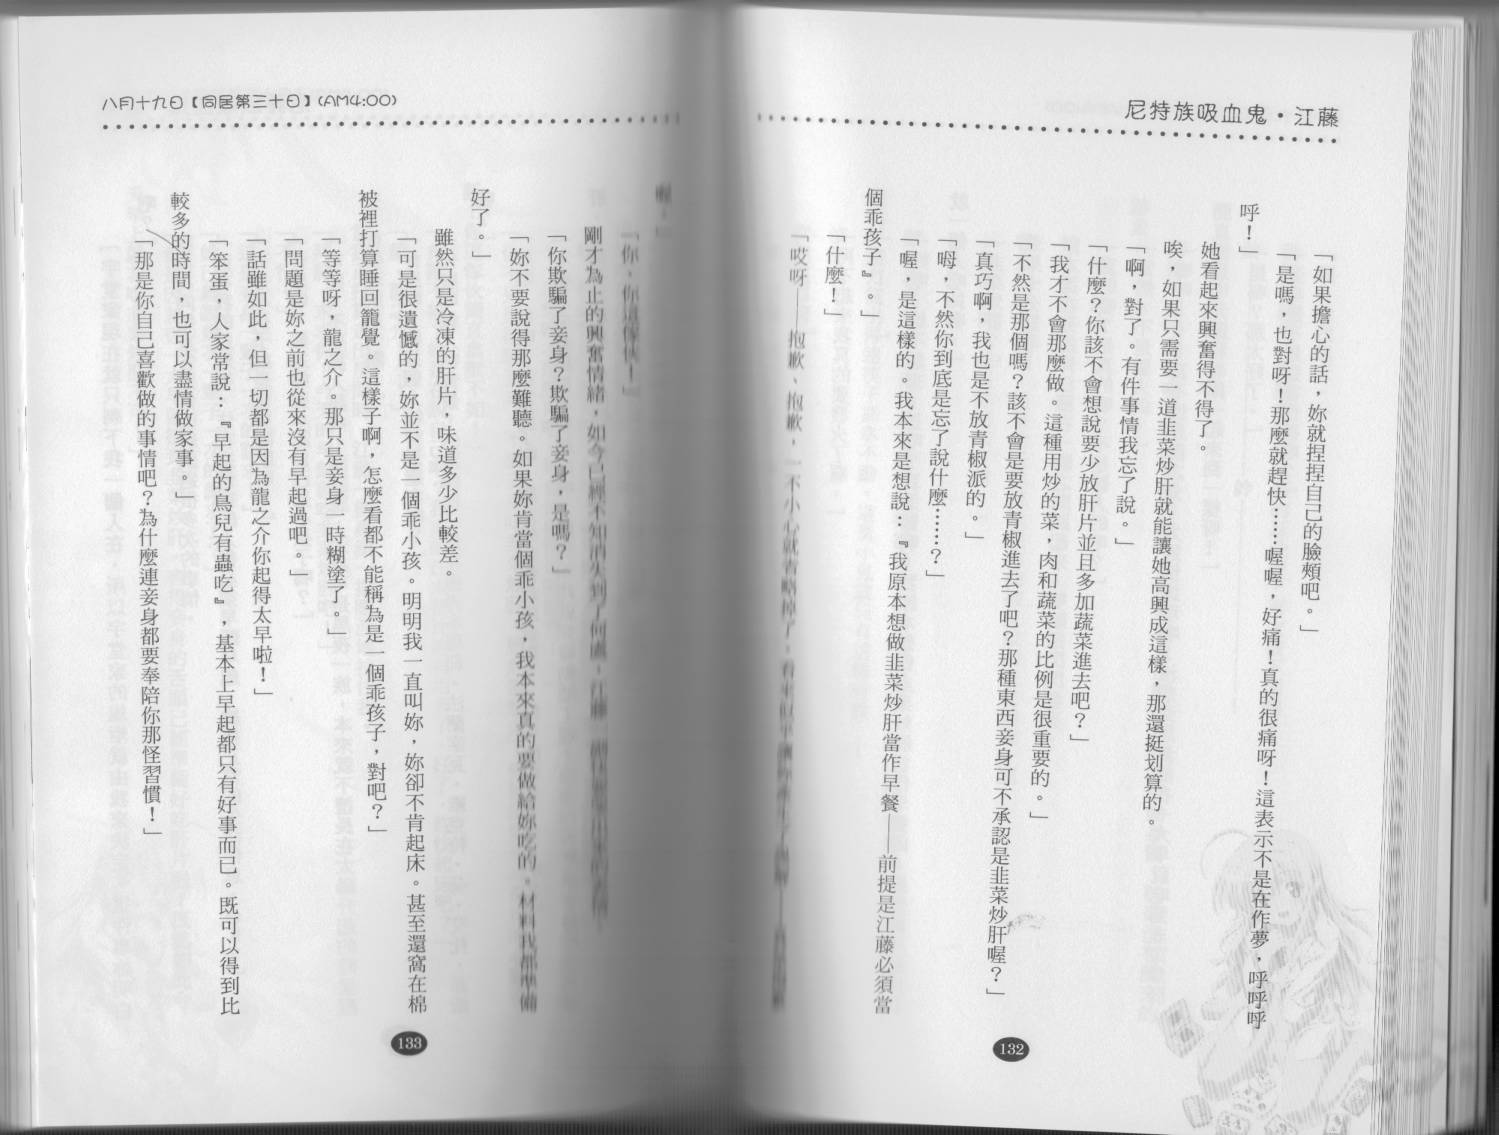 尼特族吸血鬼・江藤
「如果擔心的話，妳就捏捏自己的臉頰吧。」
「是嗎，也對呀！那麼就趕快……喔喔，好痛！真的很痛呀！這表示不是在作夢，呼呼呼
呼！」
她看起來興奮得不得了。
唉，如果只需要一道韭菜炒肝就能讓她高興成這樣，那還挺划算的。
「啊，對了。有件事情我忘了說。」
「什麼？你該不會想說要少放肝片並且多加蔬菜進去吧？」
「我才不會那麼做。這種用炒的菜，肉和蔬菜的比例是很重要的。」
「不然是那個嗎？該不會是要放青椒進去了吧？那種東西妾身可不承認是韭菜炒肝喔？」
「真巧啊，我也是不放青椒派的。」
「呣，不然你到底是忘了說什麼……？」
「喔，是這樣的。我本來是想說：『我原本想做韭菜炒肝當作早餐——前提是江藤必須當
個乖孩子』。」
「什麼！」
「哎呀——抱歉、抱歉，一不小心就省略掉了，看來似乎讓妳產生了
132
八月十九日【同居第三十日】(AM4:00)
喔。」
「你，你這傢伙！」
剛才為止的興奮情緒，如今已經不知消失到了何處，江藤
「你欺騙了妾身？欺騙了妾身，是嗎？」
「妳不要說得那麼難聽。如果妳肯當個乖小孩，我本來真的要做給妳吃的。材料我都準備
好了。」
雖然只是冷凍的肝片，味道多少比較差。
「可是很遺憾的，妳並不是一個乖小孩。明明我一直叫妳，妳卻不肯起床。甚至還窩在棉
被裡打算睡回籠覺。這樣子啊，怎麼看都不能稱為是一個乖孩子，對吧？」
「等等呀，龍之介。那只是妾身一時糊塗了。」
「問題是妳之前也從來沒有早起過吧。」
「話雖如此，但一切都是因為龍之介你起得太早啦！」
「笨蛋，人家常說：『早起的鳥兒有蟲吃』，基本上早起都只有好事而已。既可以得到比
較多的時間，也可以盡情做家事。」
「那是你自己喜歡做的事情吧？為什麼連妾身都要奉陪你那怪習慣！」
133